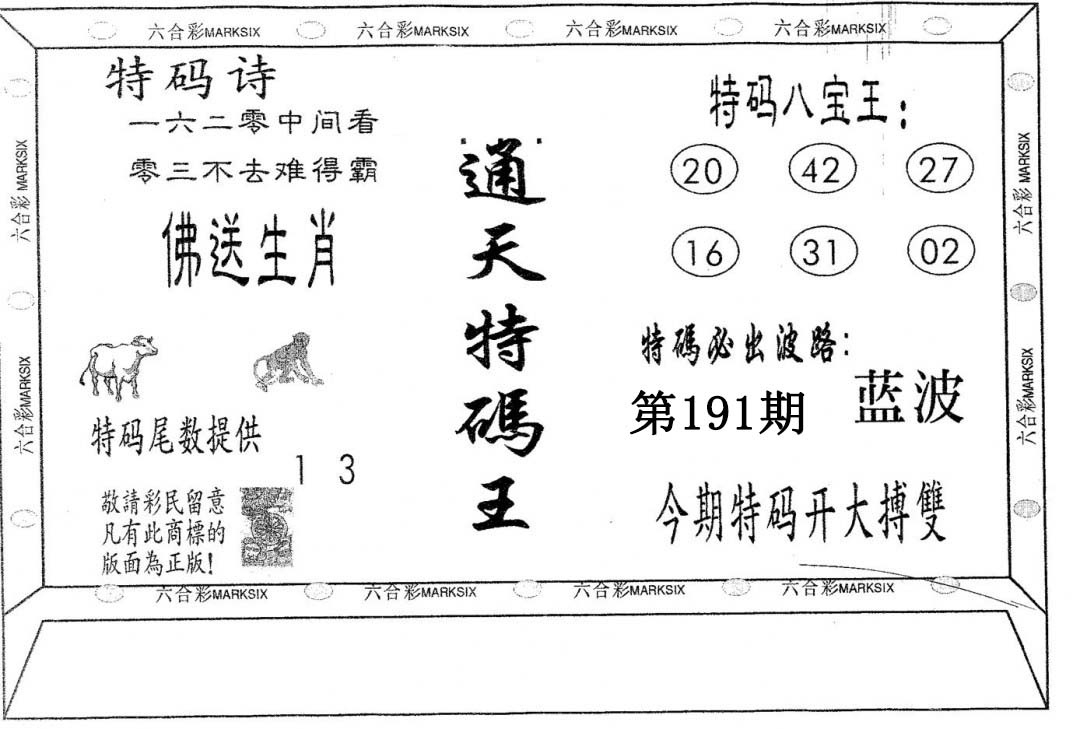 六合彩MARKSIX 六合彩MARKSIX 六合彩MARKSIX 六合彩MARKSIX
六合彩 MARKSIX
六合彩MARKSIX
特码诗
一六二零中间看
零三不去难得霸
佛送生肖
特码尾数提供
1 3
敬請彩民留意
凡有此商標的
版面為正版!
通天特碼王
特码八宝王:
20 42 27
16 31 02
特碼必出波路:
蓝波
第191期
今期特码开大搏雙
六合彩 MARKSIX
六合彩MARKSIX
六合彩MARKSIX 六合彩MARKSIX 六合彩MARKSIX 六合彩MARKSIX